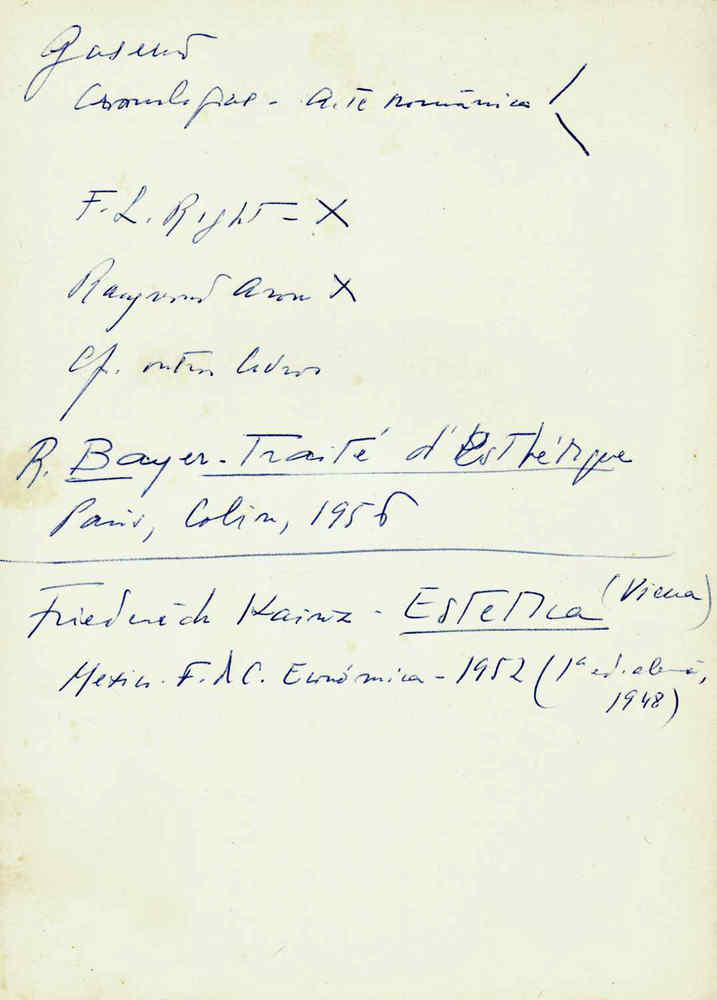 Cronologias - Arte românica
F. L. Right - X
Raymond Aron X
Cf. outros livros
R. Bayer - Traité d'Esthétique
Paris, Colin, 1956
Friederich Kainz - Estetica (Viena)
Mexico. F. de C. Económica - 1952 (1ª ed. alemã,
1948)